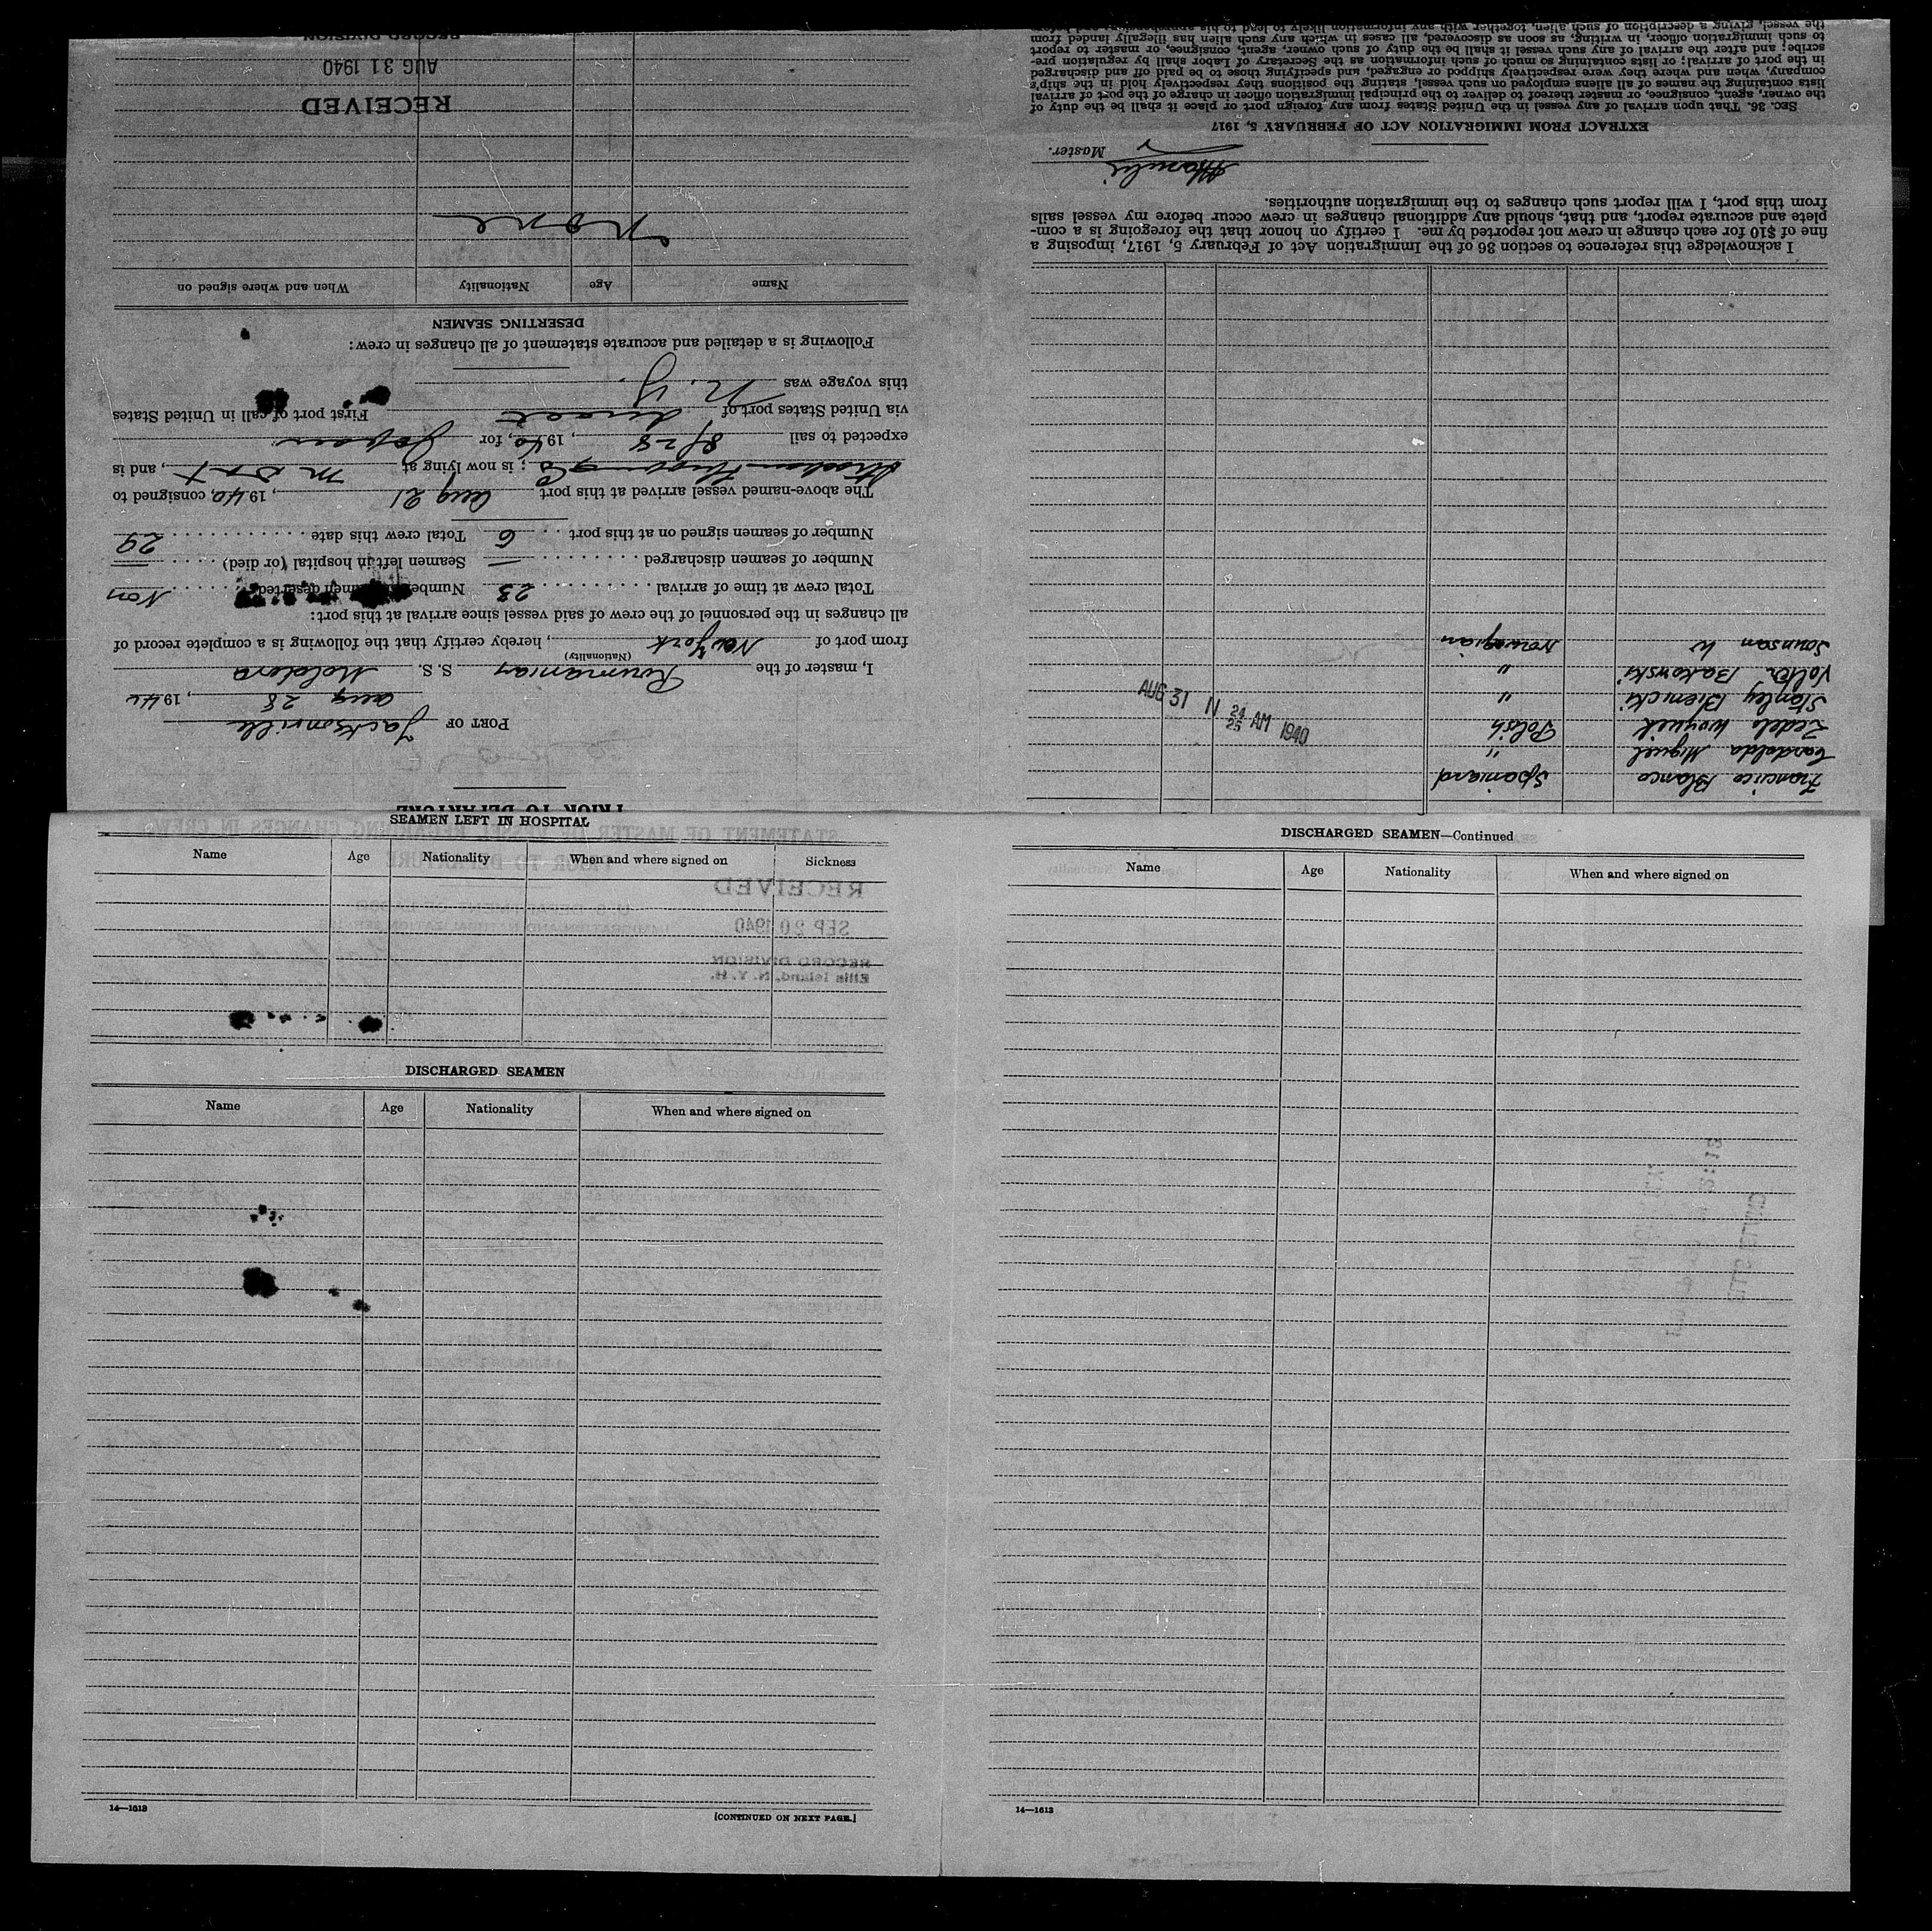 PRIOR TO DEPARTURE
PORT OF Jacksonville
Aug 28, 1940
I, master of the Roumanian S. S. Moldova
(Nationality)
from port of New York, hereby certify that the following is a complete record of
all changes in the personnel of the crew of said vessel since arrival at this port:
Total crew at time of arrival 23 Number seamen deserted Non
Number of seamen discharged — Seamen left in hospital (or died) —
Number of seamen signed on at this port 6 Total crew this date 29
The above-named vessel arrived at this port Aug 21, 1940, consigned to
Strachan Shipping Co; is now lying at, and is
expected to sail 8/28, 1940, for Japan
via United States port of direct First port of call in United States
this voyage was N. Y.
Following is a detailed and accurate statement of all changes in crew:
DESERTING SEAMEN
Name Age Nationality When and where signed on
None
RECEIVED
AUG 31 1940
RECORD DIVISION
Francisco Blanco Spaniard
Candolda Miguel "
Zedelo Woyuik Polish
Stanley Bienicki "
Volter Bakowski "
Jounson W Norwegian
AUG 31 N 24 25 AM 1940
I acknowledge this reference to section 36 of the Immigration Act of February 5, 1917, imposing a
fine of $10 for each change in crew not reported by me. I certify on honor that the foregoing is a com-
plete and accurate report, and that, should any additional changes in crew occur before my vessel sails
from this port, I will report such changes to the immigration authorities.
Master.
EXTRACT FROM IMMIGRATION ACT OF FEBRUARY 5, 1917
SEC. 36. That upon arrival of any vessel in the United States from any foreign port or place it shall be the duty of
the owner, agent, consignee, or master thereof to deliver to the principal immigration officer in charge of the port of arrival
lists containing the names of all aliens employed on such vessel, stating the positions they respectively hold in the ship's
company, when and where they were respectively shipped or engaged, and specifying those to be paid off and discharged
in the port of arrival; or lists containing so much of such information as the Secretary of Labor shall by regulation pre-
scribe; and after the arrival of any such vessel it shall be the duty of such owner, agent, consignee, or master to report
to such immigration officer, in writing, as soon as discovered, all cases in which any such alien has illegally landed from
the vessel, giving a description of such alien, together with any information likely to lead to his apprehension; and before
SEAMEN LEFT IN HOSPITAL
Name Age Nationality When and where signed on Sickness
RECEIVED
SEP 20 1940
RECORD DIVISION
Ellis Island, N. Y. H.
DISCHARGED SEAMEN
Name Age Nationality When and where signed on
14—1613
[CONTINUED ON NEXT PAGE.]
DISCHARGED SEAMEN—Continued
Name Age Nationality When and where signed on
14—1613